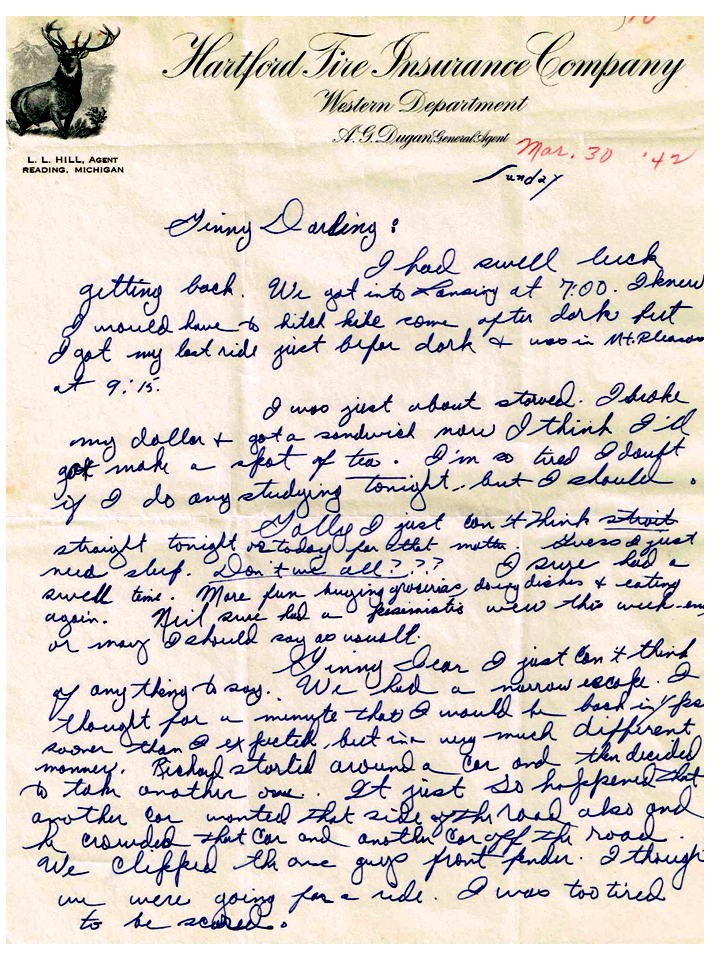 Hartford Fire Insurance Company
Western Department
A. G. Dugan, General Agent
L. L. HILL, AGENT
READING, MICHIGAN
Mar. 30 '42
Sunday
Ginny Darling:
I had swell luck
getting back. We got into Lansing at 7:00. I knew
I would have to hitch hike come after dark but
I got my last ride just befor dark & was in Mt. Pleasan
at 9:15.
I was just about starved. I broke
my dollar & got a sandwich now I think I'll
make a spot of tea. I'm so tired I doubt
if I do any studying tonight, but I should.
Golly I just can't think strait
straight tonight or today for that matter. Guess I just
need sleep. Don't we all??? I sure had a
swell time. More fun buying groceries doing dishes & eating
again. Neil sure had a pesimistic view this week-en
or may I should say as usuall.
Ginny Dear I just can't think
of any thing to say. We had a narrow escape. I
thought for a minute that I would be back in Yps
sooner than I expected, but in a very much different
manner. Richard started around a car and then decided
to take another one. It just so happened that
another car wanted that side of the road also and
he crowded that car and another car off the road.
We clipped th one guys front fender. I though
we were going for a ride. I was too tired
to be scared.